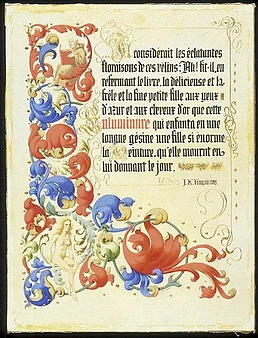 Il considérait les éclatantes
floraisons de ces vélins: Ah! fit-il, en
refermant le livre, la délicieuse et la
frêle et la fine petite fille aux yeux
d'azur et aux cheveux d'or que cette
enluminure qui enfanta en une
longue gésine une fille si énorme
la Peinture, qu'elle mourut en
lui donnant le jour.
J. K. Huysmans